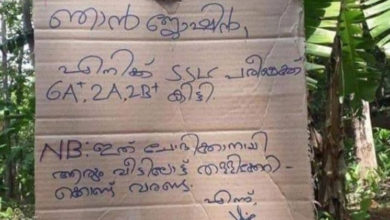 ഞാൻ ജോഷിൻ,
എനിക്ക് SSLC പരീക്ഷക്ക്
6A⁺, 2A, 2B⁺ കിട്ടി.
NB: ഇത് ചോദിക്കാനായി
ആരും വീട്ടിലോട്ട്
കൊണ്ട് വരണ്ട.
എന്ന്,